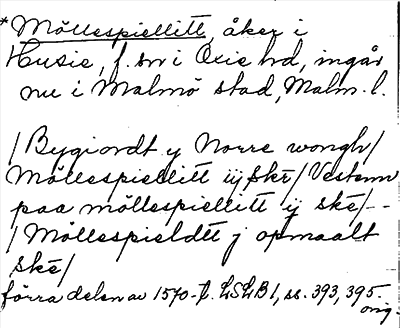 *Möllespiellitt, åker i
Husie, f. sn i Oxie hd, ingår
nu i Malmö stad, Malm. l.
/Bygiordt y Norre wongh/
Möllespiellitt iij skè/Vestenn
paa möllespiellitt ij skè/--
/Möllespieldtt j opmaalt
skè/
förra delen av 1570-t. LSLB1, ss. 393, 395.
orig.